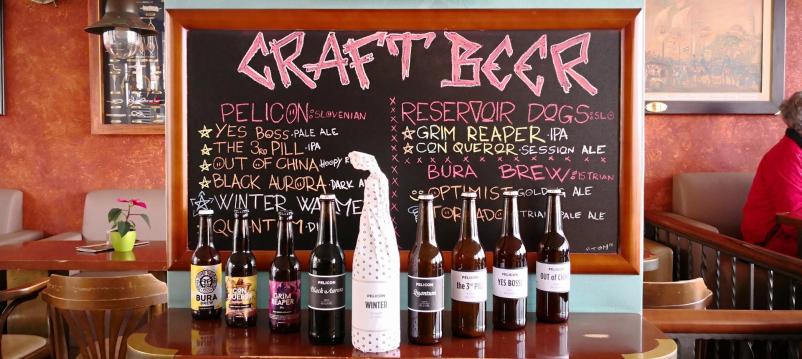 CRAFT BEER
PELICON SLOVENIAN
YES BOSS · PALE ALE
THE 3RD PILL · IPA
OUT OF CHINA HOOPY
BLACK AURORA · DARK
WINTER
QUANTUM ·
RESERVOIR DOGS SLO
GRIM REAPER · IPA
CON QUEROR · SESSION ALE
BURA BREW ISTRIAN
OPTIMIST GOLD ALE
PALE ALE
BURA
BREW
CON
QUEROR
GRIM
REAPER
PELICON
Black Aurora
PELICON
WINTER
PELICON
Quantum
PELICON
the 3rd
PELICON
YES BOSS
PELICON
OUT of